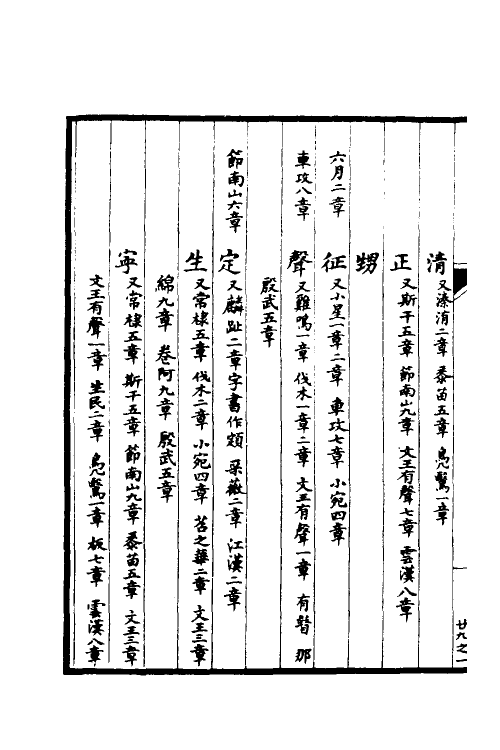 清又溱洧二章 黍苗五章 鳧鷖一章
正又斯干五章 節南山九章 文王有聲七章 雲漢八章
甥
六月二章 征又小星一章二章 車攻七章 小宛四章
車攻八章 聲又雞鳴一章 伐木一章二章 文王有聲一章 有瞽 那
殷武五章
節南山六章 定又麟趾二章字書作顁 采薇二章 江漢二章
生又常棣五章 伐木二章 小宛四章 苕之華二章 文王三章
綿九章 卷阿九章 殷武五章
寜又常棣五章 斯干五章 節南山九章 黍苗五章 文王三章
文王有聲一章 生民二章 鳧鷖一章 板七章 雲漢八章
廿九之一